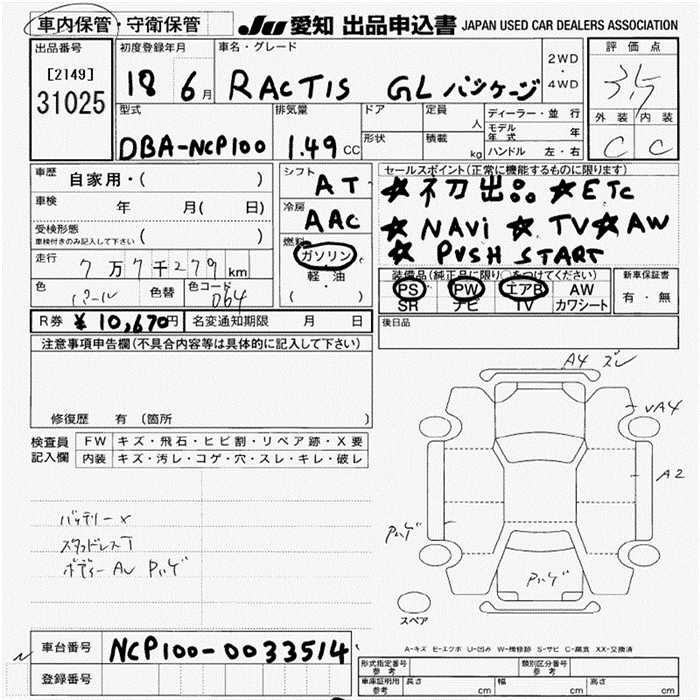 車内保管・守衛保管 JU 愛知 出品申込書 JAPAN USED CAR DEALERS ASSOCIATION
出品番号 初度登録年月 車名・グレード 評価点
[2149] 18 6月 RACTIS GL パッケージ 2WD・4WD 3.5
31025 型式 排気量 ドア 定員 人 ディーラー・並行 外装 内装
モデル年式 年
DBA-NCP100 1.49CC 形状 積載 kg ハンドル 左・右 C C
車歴 自家用・( ) シフト AT セールスポイント(正常に機能するものに限ります)
車検 年 月( 日) 冷房 AAC ★初刀出品 ★ETC
受検形態 車検付きのみ記入して下さい ( ) 燃料 ガソリン ★NAVi ★TV★AW
軽・油 ★PUSH START
走行 7万7千279km ( )
装備品(純正品に限り○をつけてください) 新車保証書
色 パール 色替 色コード 064 PS PW エアB AW 有・無
SR ナビ TV カワシート
R券 ¥10,670円 名変通知期限 月 日 後日品
注意事項申告欄(不具合内容等は具体的に記入して下さい)
修復歴 有 (箇所
検査員記入欄 FW キズ・飛石・ヒビ割・リペア跡・X要
内装 キズ・汚レ・コゲ・穴・スレ・キレ・破レ
A4 ズレ
A4
A2
バッテリーX
スタッドレスT
ボディーAU Pハゲ
Pハゲ
Pハゲ
スペア
A-キズ E-エクボ U-凹み W-補修跡 S-サビ C-腐食 XX-交換済
車台番号 NCP100-0033514
登録番号
形式指定番号 参考 類別区分番号 参考
車庫証明用 参考 長さ cm 幅 cm 高さ cm